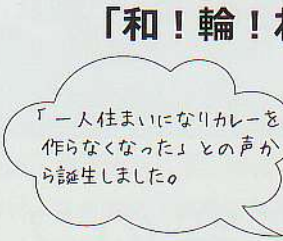 「和！輪！
「一人住まいになりカレーを
作らなくなった」との声か
ら誕生しました。